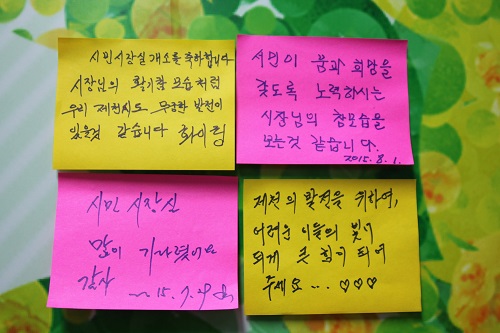 시민시장실 개소를 축하합니다
시장님의 활기찬 모습처럼
우리 제천시도 무궁한 발전이
있을것 같습니다 화이팅
시민이 꿈과 희망을
갖도록 노력하시는
시장님의 참모습을
보는것 같습니다.
2015.8.1.
시민 시장실
많이 기다렸어요
감사
15.7.29
제천의 발전을 위하여,
어려운 이들의 빛이
되게 큰 힘이 되어
주세요... ♡♡♡